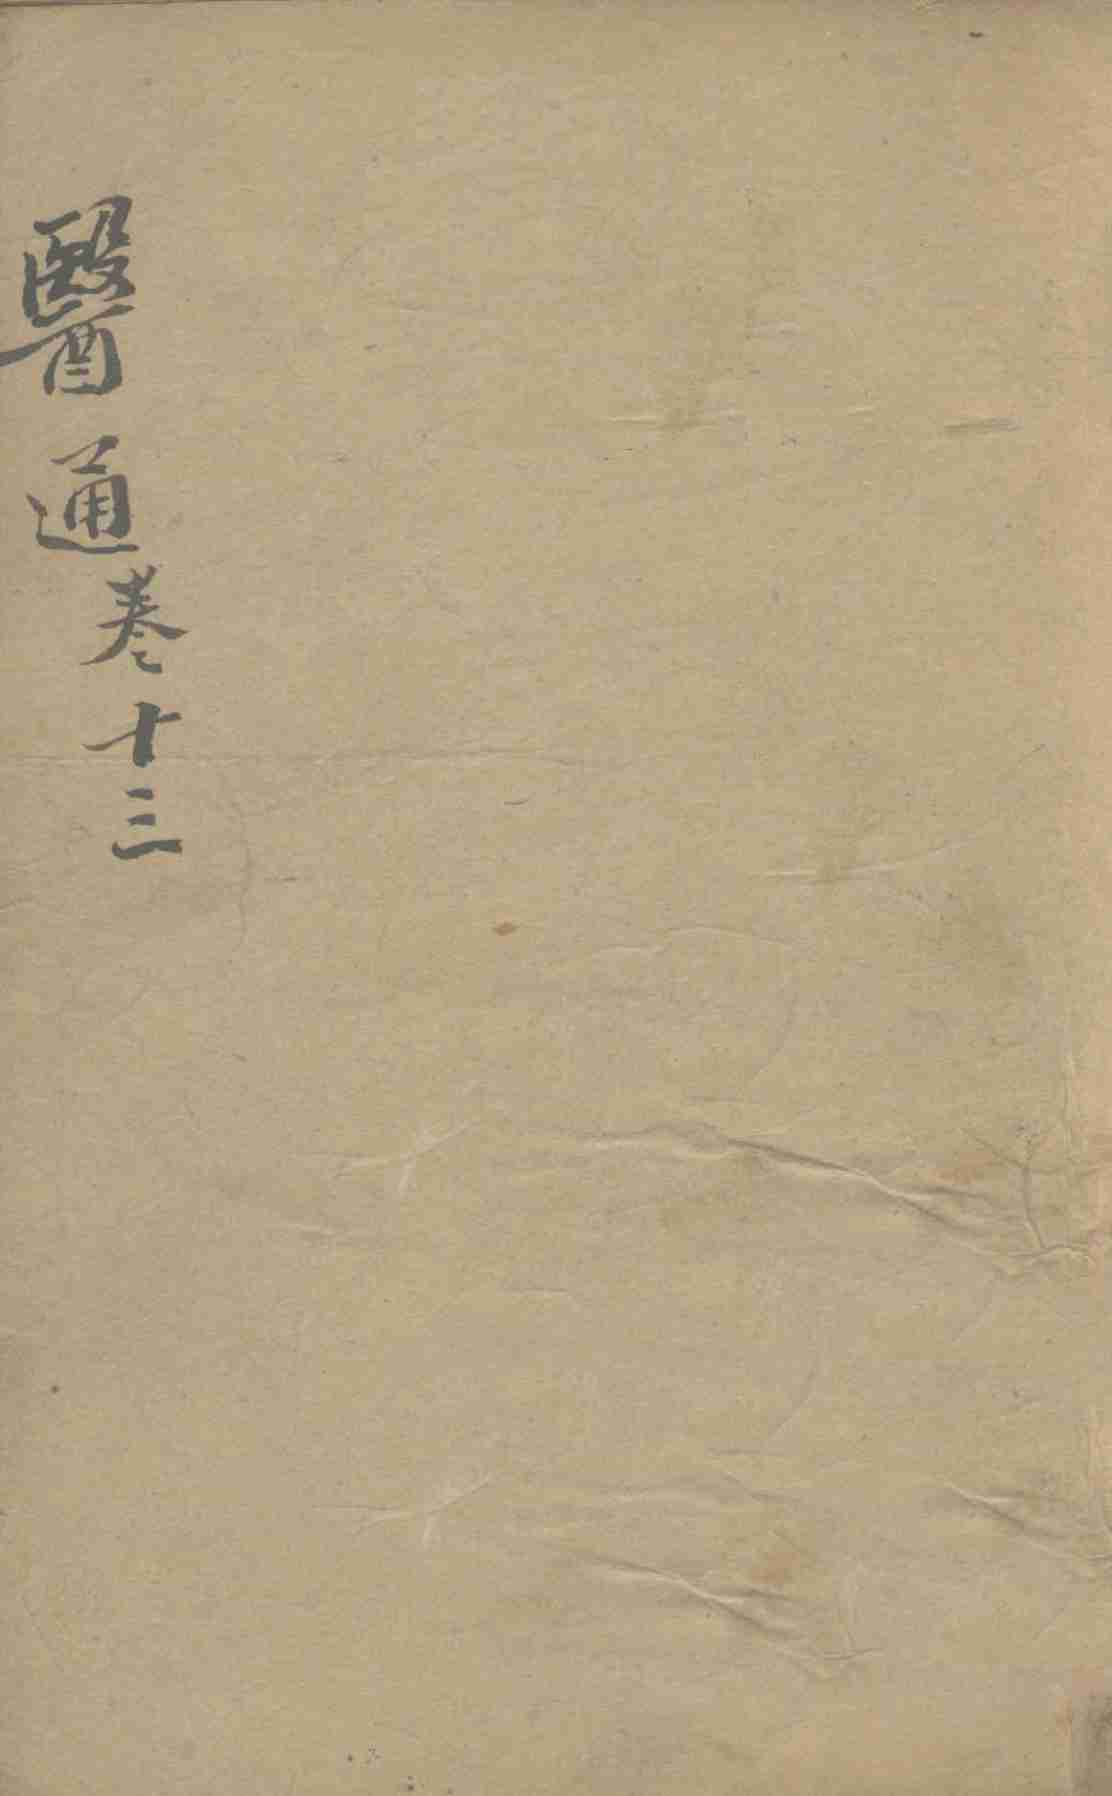 醫通卷十三